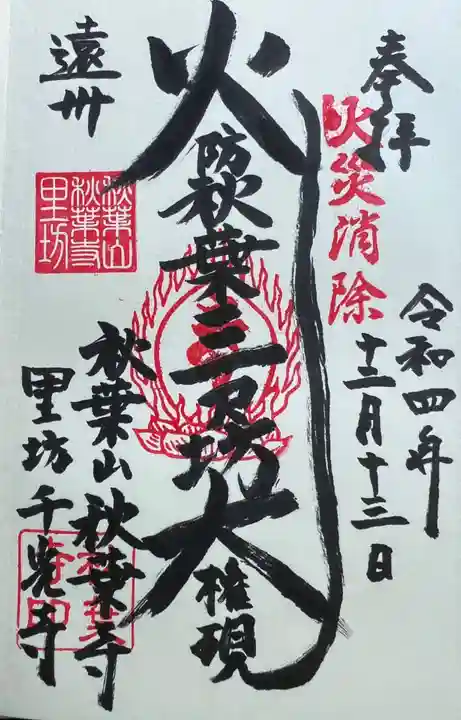 奉拝
火災消除
令和四年
十二月十三日
火防秋葉三尺坊大権現
遠州
秋葉山
秋葉寺
里坊
秋葉山秋葉寺
里坊千光寺